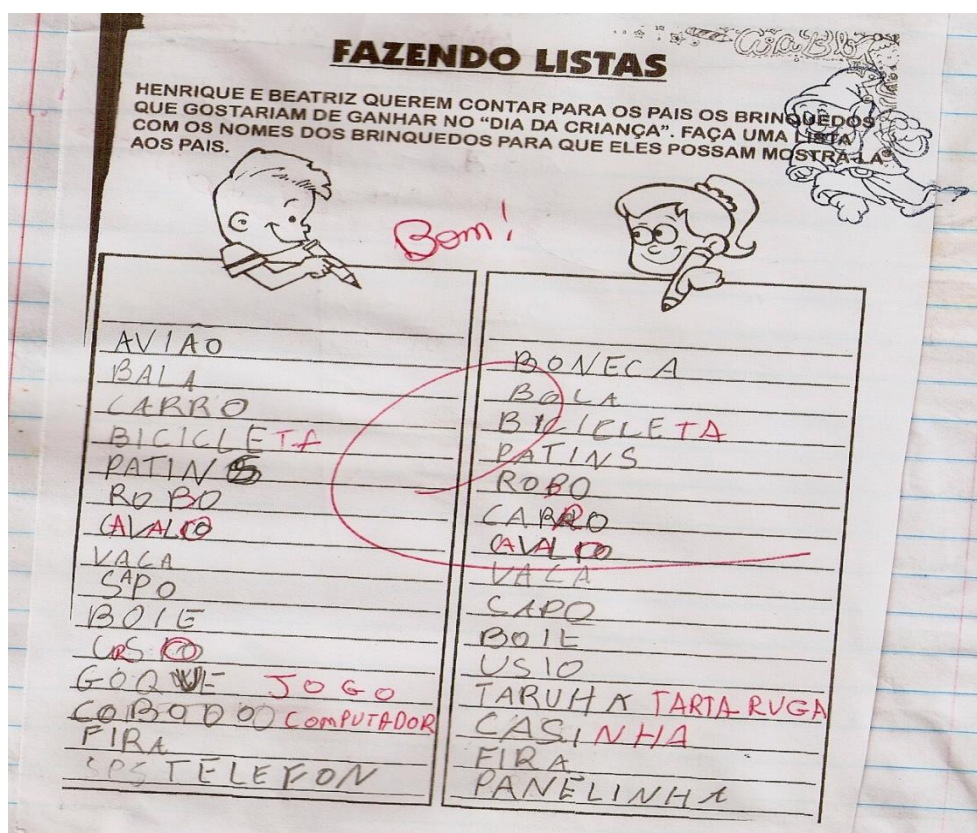 FAZENDO LISTAS
HENRIQUE E BEATRIZ QUEREM CONTAR PARA OS PAIS OS BRINQUEDOS
QUE GOSTARIAM DE GANHAR NO “DIA DA CRIANÇA”. FAÇA UMA LISTA
COM OS NOMES DOS BRINQUEDOS PARA QUE ELES POSSAM MOSTRÁ-LA
AOS PAIS.
Bom!
AVIÃO
BALA
CARRO
BICICLETA
PATINS
ROBO
CAVALO
VACA
SAPO
BOIE
URSO
GOQUE JOGO
COBODO COMPUTADOR
FIRA
TELEFON
BONECA
BOLA
BICICLETA
PATINS
ROBO
CARRO
CAVALO
VACA
SAPO
BOIE
USIO
TARUHA TARTARUGA
CASINHA
FIRA
PANELINHA